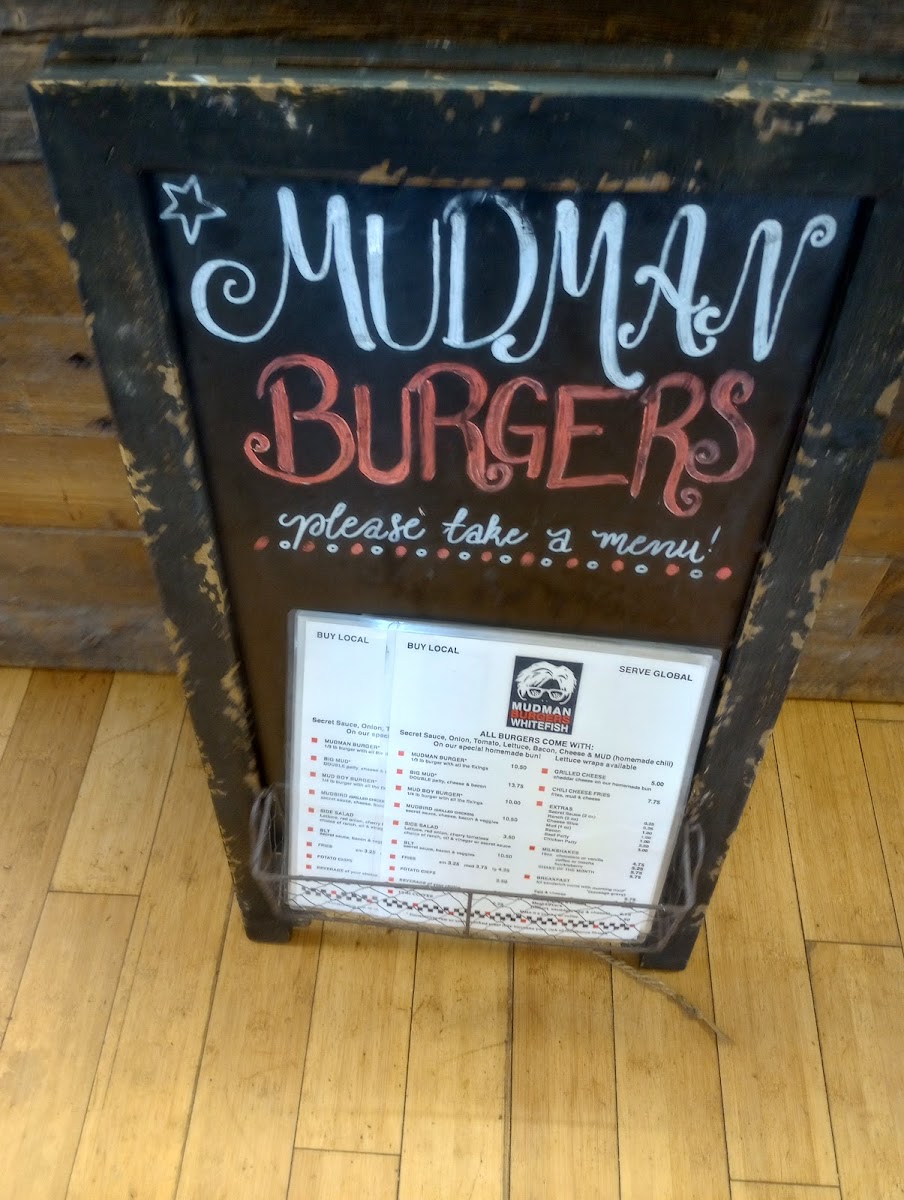 MUDMAN
BURGERS
please take a menu!
BUY LOCAL
Secret Sauce, Onion, T
On our spec
MUDMAN BURGER*
1/3 lb burger with all the
BIG MUD*
DOUBLE patty, cheese &
MUD BOY BURGER*
1/4 lb burger with all the
MUDBIRD (GRILLED CHICKEN
secret sauce, cheese,
SIDE SALAD
Lettuce, red onion, cherry
choice of ranch, oil &
BLT
secret sauce, bacon &
FRIES sm 3.25
POTATO CHIPS
BEVERAGE of your choice
BUY LOCAL
SERVE GLOBAL
MUDMAN
BURGERS
WHITEFISH
ALL BURGERS COME WITH:
Secret Sauce, Onion, Tomato, Lettuce, Bacon, Cheese & MUD (homemade chili)
On our special homemade bun! Lettuce wraps available
MUDMAN BURGER* 10.50
1/3 lb burger with all the fixings
BIG MUD* 13.75
DOUBLE patty, cheese & bacon
MUD BOY BURGER* 10.00
1/4 lb burger with all the fixings
MUDBIRD (GRILLED CHICKEN) 10.50
secret sauce, cheese, bacon & veggies
SIDE SALAD 3.50
Lettuce, red onion, cherry tomatoes
choice of ranch, oil & vinegar or secret sauce
BLT 10.50
secret sauce, bacon & veggies
FRIES sm 3.25 med 3.75 lg 4.25
POTATO CHIPS
BEVERAGE of your choice
GRILLED CHEESE 5.00
cheddar cheese on our homemade bun
CHILI CHEESE FRIES 7.75
Fries, mud & cheese
EXTRAS
Secret Sauce (2 oz)
Ranch (2 oz)
Cheese Slice
Mud (1 oz)
Bacon
Beef Patty
Chicken Patty
MILKSHAKES
16oz chocolate or vanilla
coffee or mocha
huckleberry
BREAKFAST